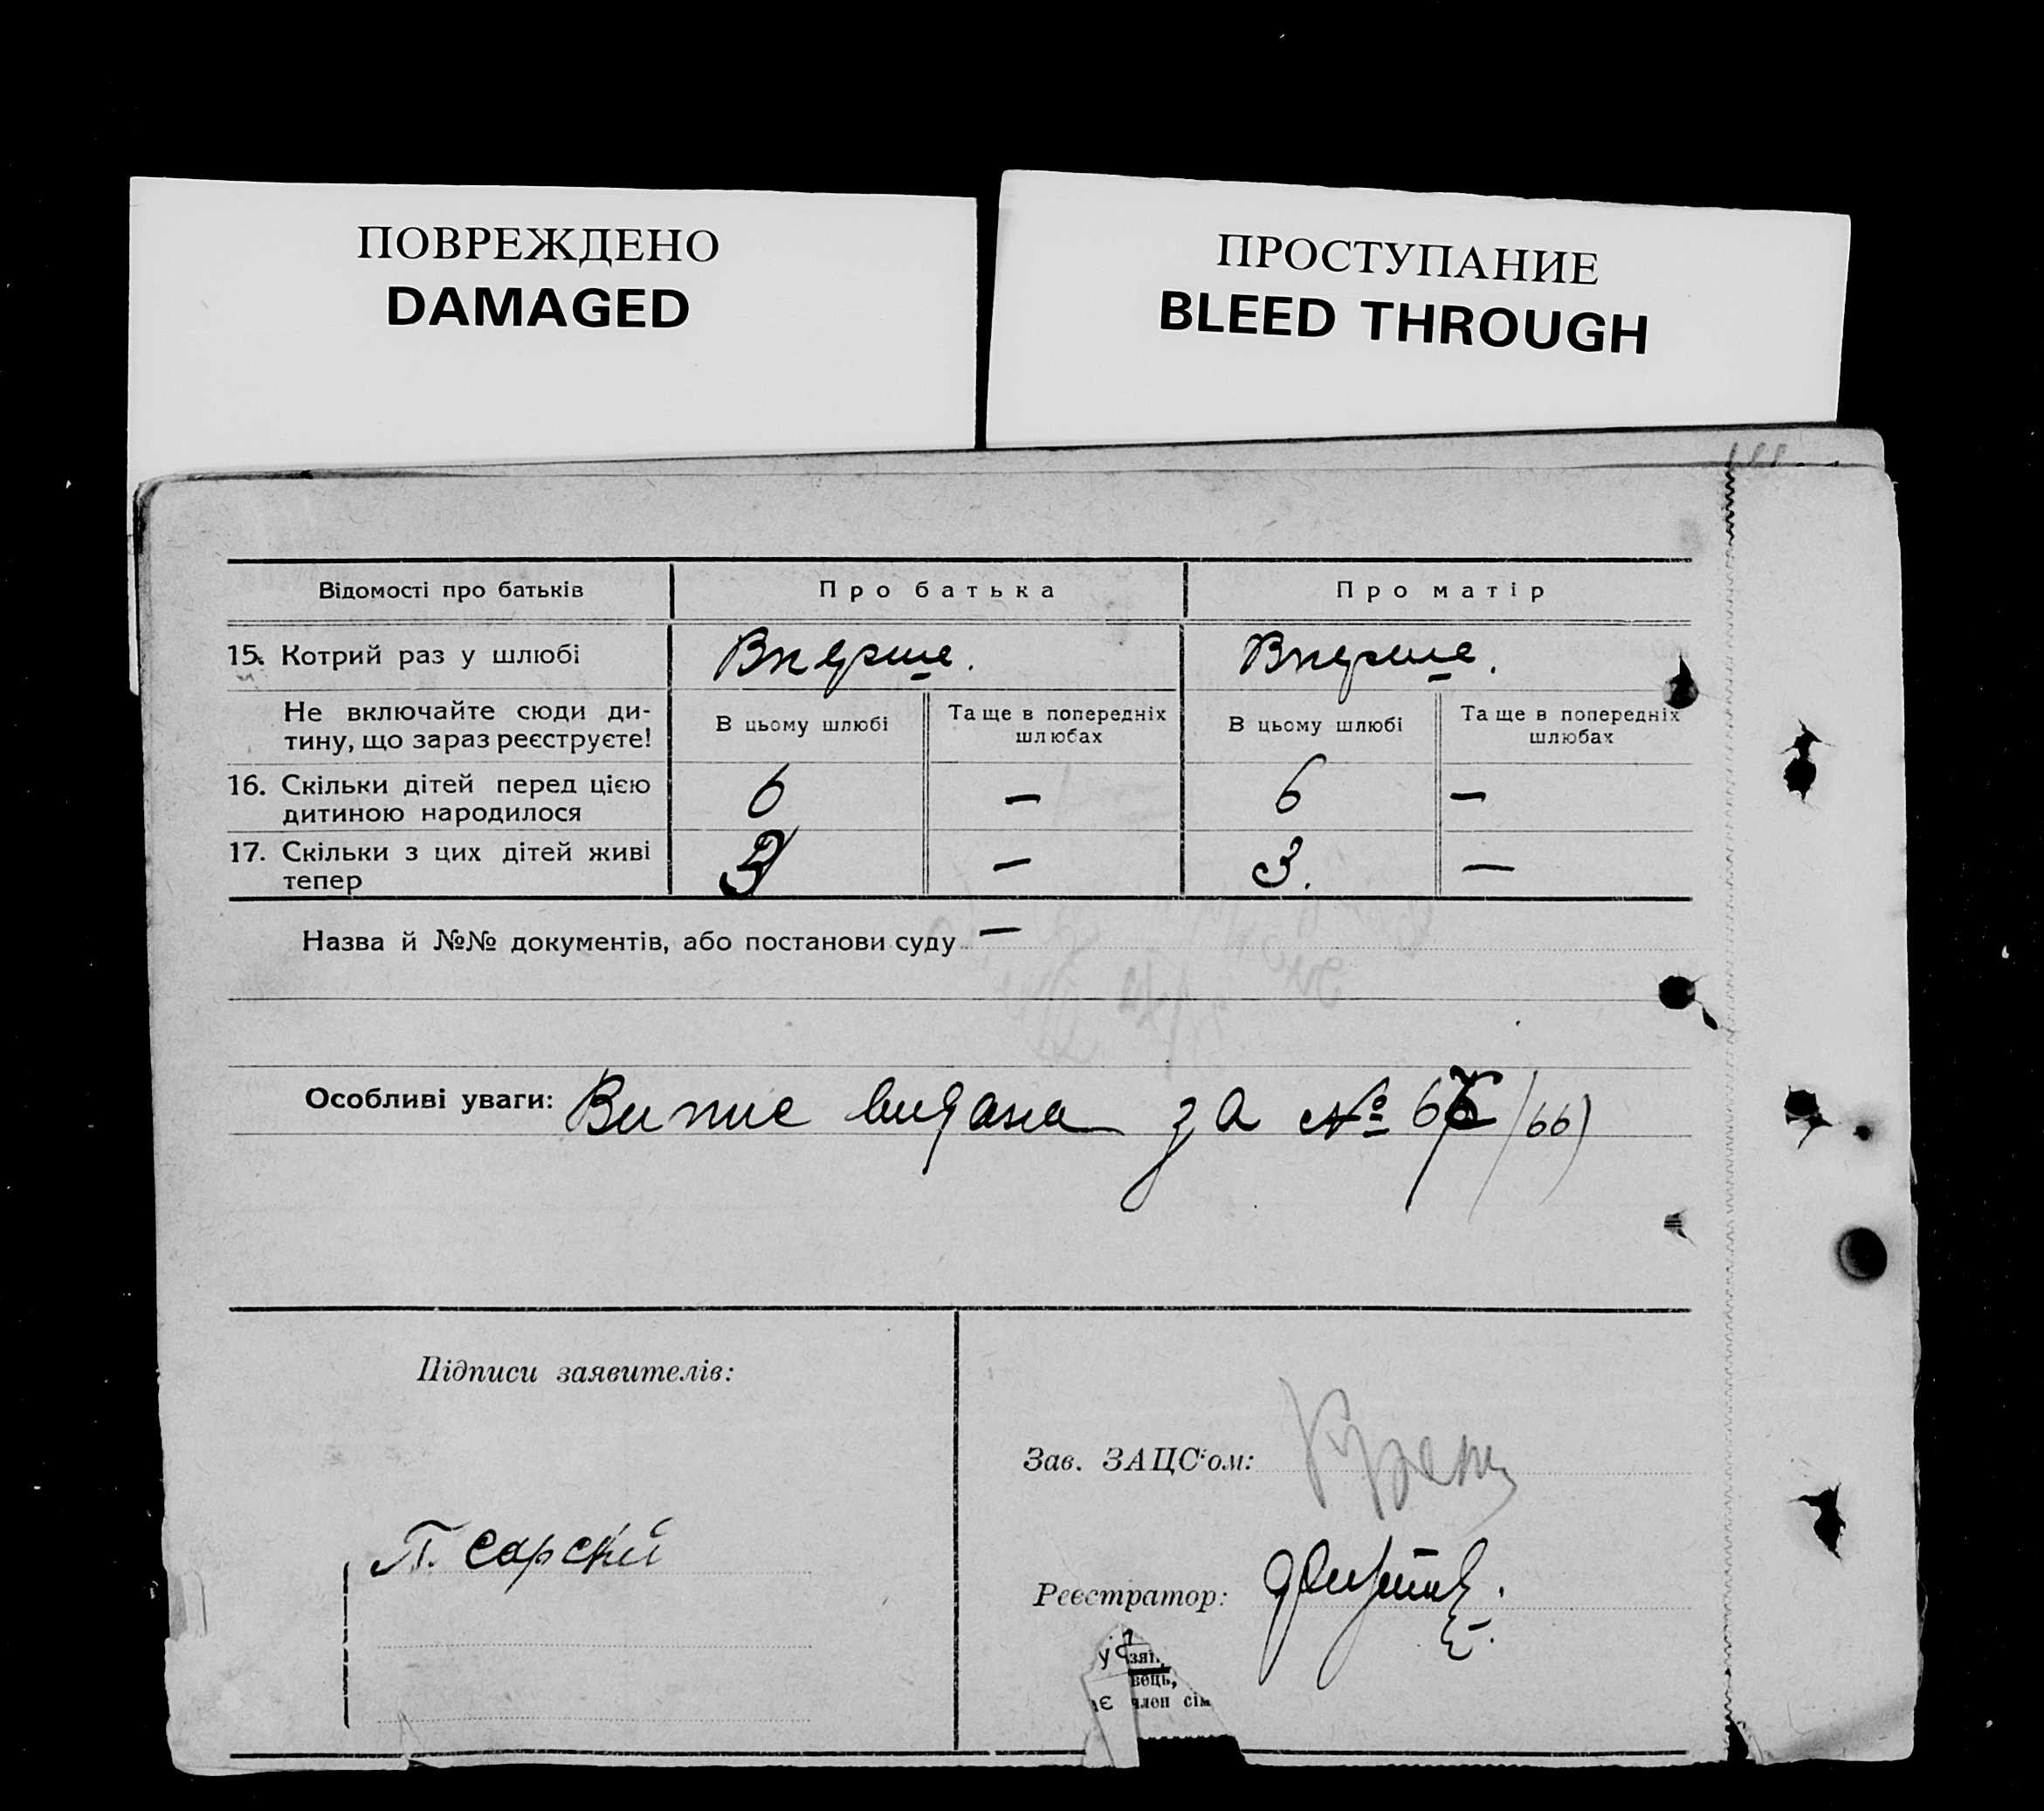 ПОВРЕЖДЕНО
DAMAGED
ПРОСТУПАНИЕ
BLEED THROUGH
Відомості про батьків Про батька Про матір
15. Котрий раз у шлюбі Вперше. Вперше.
Не включайте сюди ди-
тину, що зараз реєструєте!
В цьому шлюбі
Та ще в попередніх
шлюбах
В цьому шлюбі
Та ще в попередніх
шлюбах
16. Скільки дітей перед цією
дитиною народилося
6 — 6 —
17. Скільки з цих дітей живі
тепер
3 — 3. —
Назва й №№ документів, або постанови суду —
Особливі уваги: Випис видана за № /66)
Підписи заявителів:
П. Сарскій
Зав. ЗАЦС'ом:
Реєстратор:
вець,
член сім